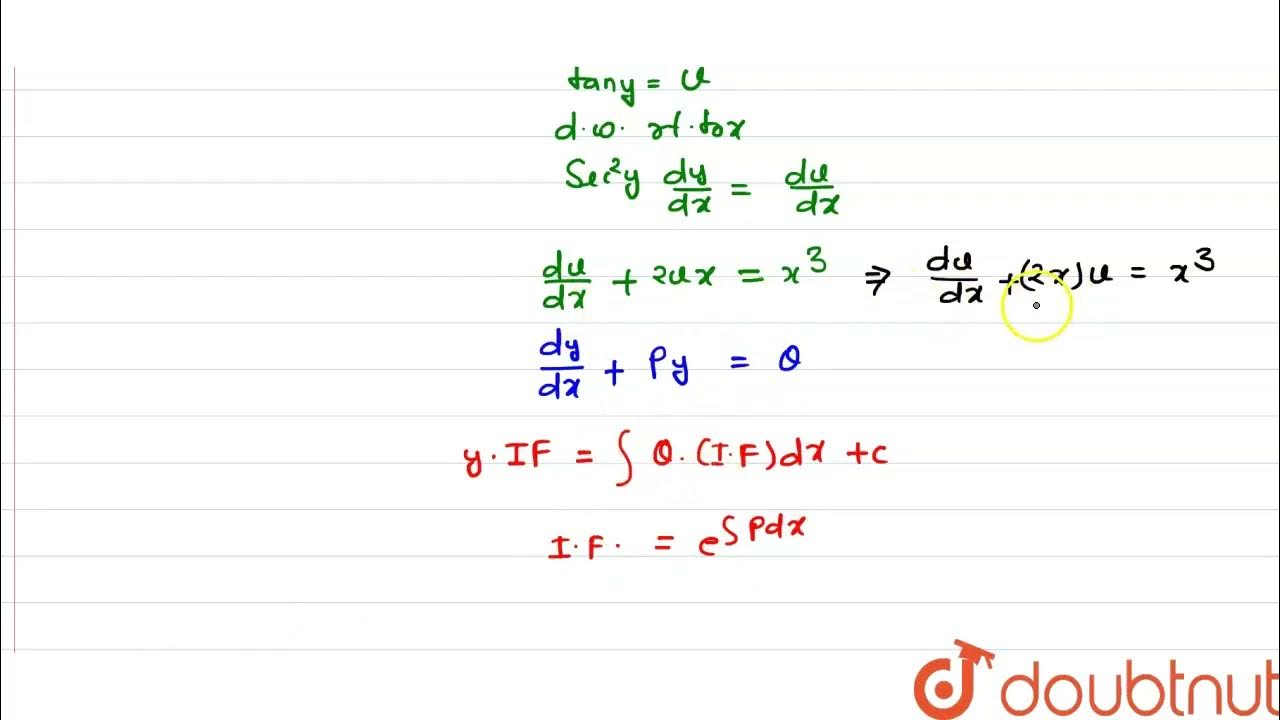 tany = u
d.w. rt.tox
Sec²y dy/dx = du/dx
du/dx + 2ux = x³ ⇒ du/dx + (2x)u = x³
dy/dx + Py = Q
y. IF = ∫ Q. (I.F)dx + c
I.F. = e^∫Pdx
doubtnut